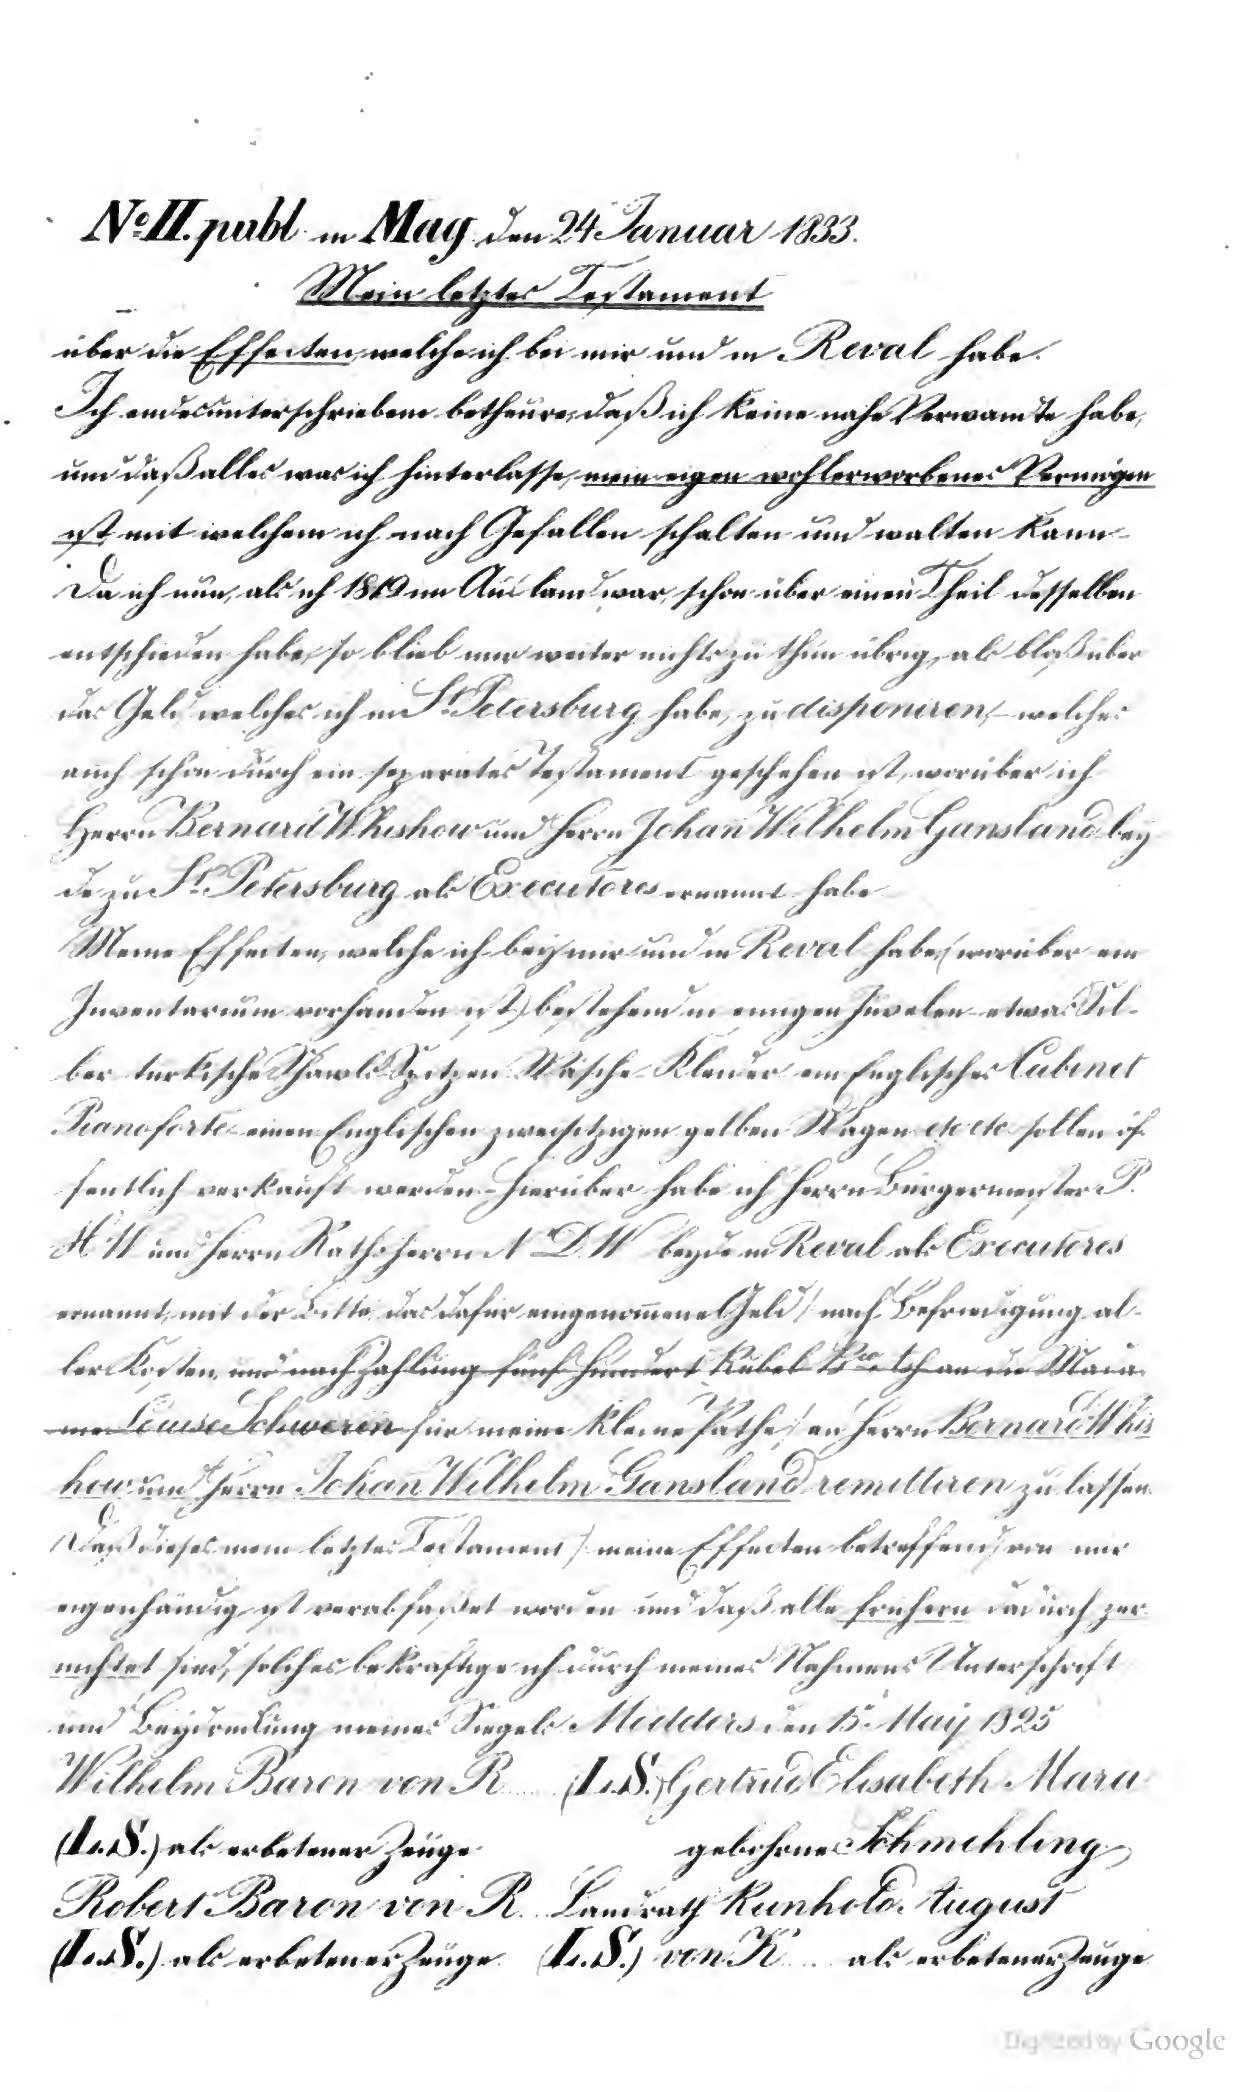 No II. publ. in Mag. den 24 Januar 1833.
Mein letztes Testament
über die Effecten, welche ich bei mir und in Reval habe.
Ich endesunterschriebene betheure, daß ich keine nahe Verwandte habe,
und daß alles was ich hinterlasse, mein eigen wohlerworbenes Vermögen
ist, mit welchem ich nach Gefallen schalten und walten kann –
Da ich nun, als ich 1819 im Ausland war, schon über einen Theil desselben
entschieden habe, so blieb mir weiter nichts zu thun übrig, als bloß über
das Geld welches ich in St. Petersburg habe, zu disponiren, – welches
auch schon durch ein separates Testament geschehen ist, worüber ich
Herrn Bernard Whishow und Herrn Johan Wilhelm Gansland bey
de zu St. Petersburg als Executores ernannt habe
Meine Effecten, welche ich bey mir und in Reval habe, (worüber ein
Inventarium vorhanden ist) bestehend in einigen Juvelen etwas Sil-
ber türkische Shawls Spitzen Wäsche Kleider ein Englisches Cabinet
Pianoforte einen Englischen zweisitzigen gelben Wagen etc etc sollen öf-
fentlich verkauft werden – Hierüber habe ich Herrn Bürgermeister P.
H. W und Herrn Rathsherrn N D. W beyde in Reval als Executores
ernannt, mit der Bitte, das dafür eingenommene Geld / nach Befriedigung al-
ler Kosten, und nach Zahlung fünf hundert Rubel Bco Ass an die Mada-
me Louise Schweren für meine kleine Pathe / an Herrn Bernard Whis
how und Herrn Johan Wilhelm Gansland remittiren zu lassen.
Daß dieses mein letztes Testament / meine Effecten betreffend / von mir
eigenhändig ist verabfaßet worden und daß alle frühern dadurch zer-
nichtet sind, solches bekräftige ich durch meines Nahmens Unterschrift
und Beydrückung meines Siegels Medders den 15. May 1825
Wilhelm Baron von R.... (L.S.) Gertrud Elisabeth Mara
(L.S.) als erbetener Zeuge gebohrne Schmehling
Robert Baron von R... Landrath Reinhold August
(L.S.) als erbetener Zeuge (L.S.) von K.... als erbetener Zeuge
Digitized by Google